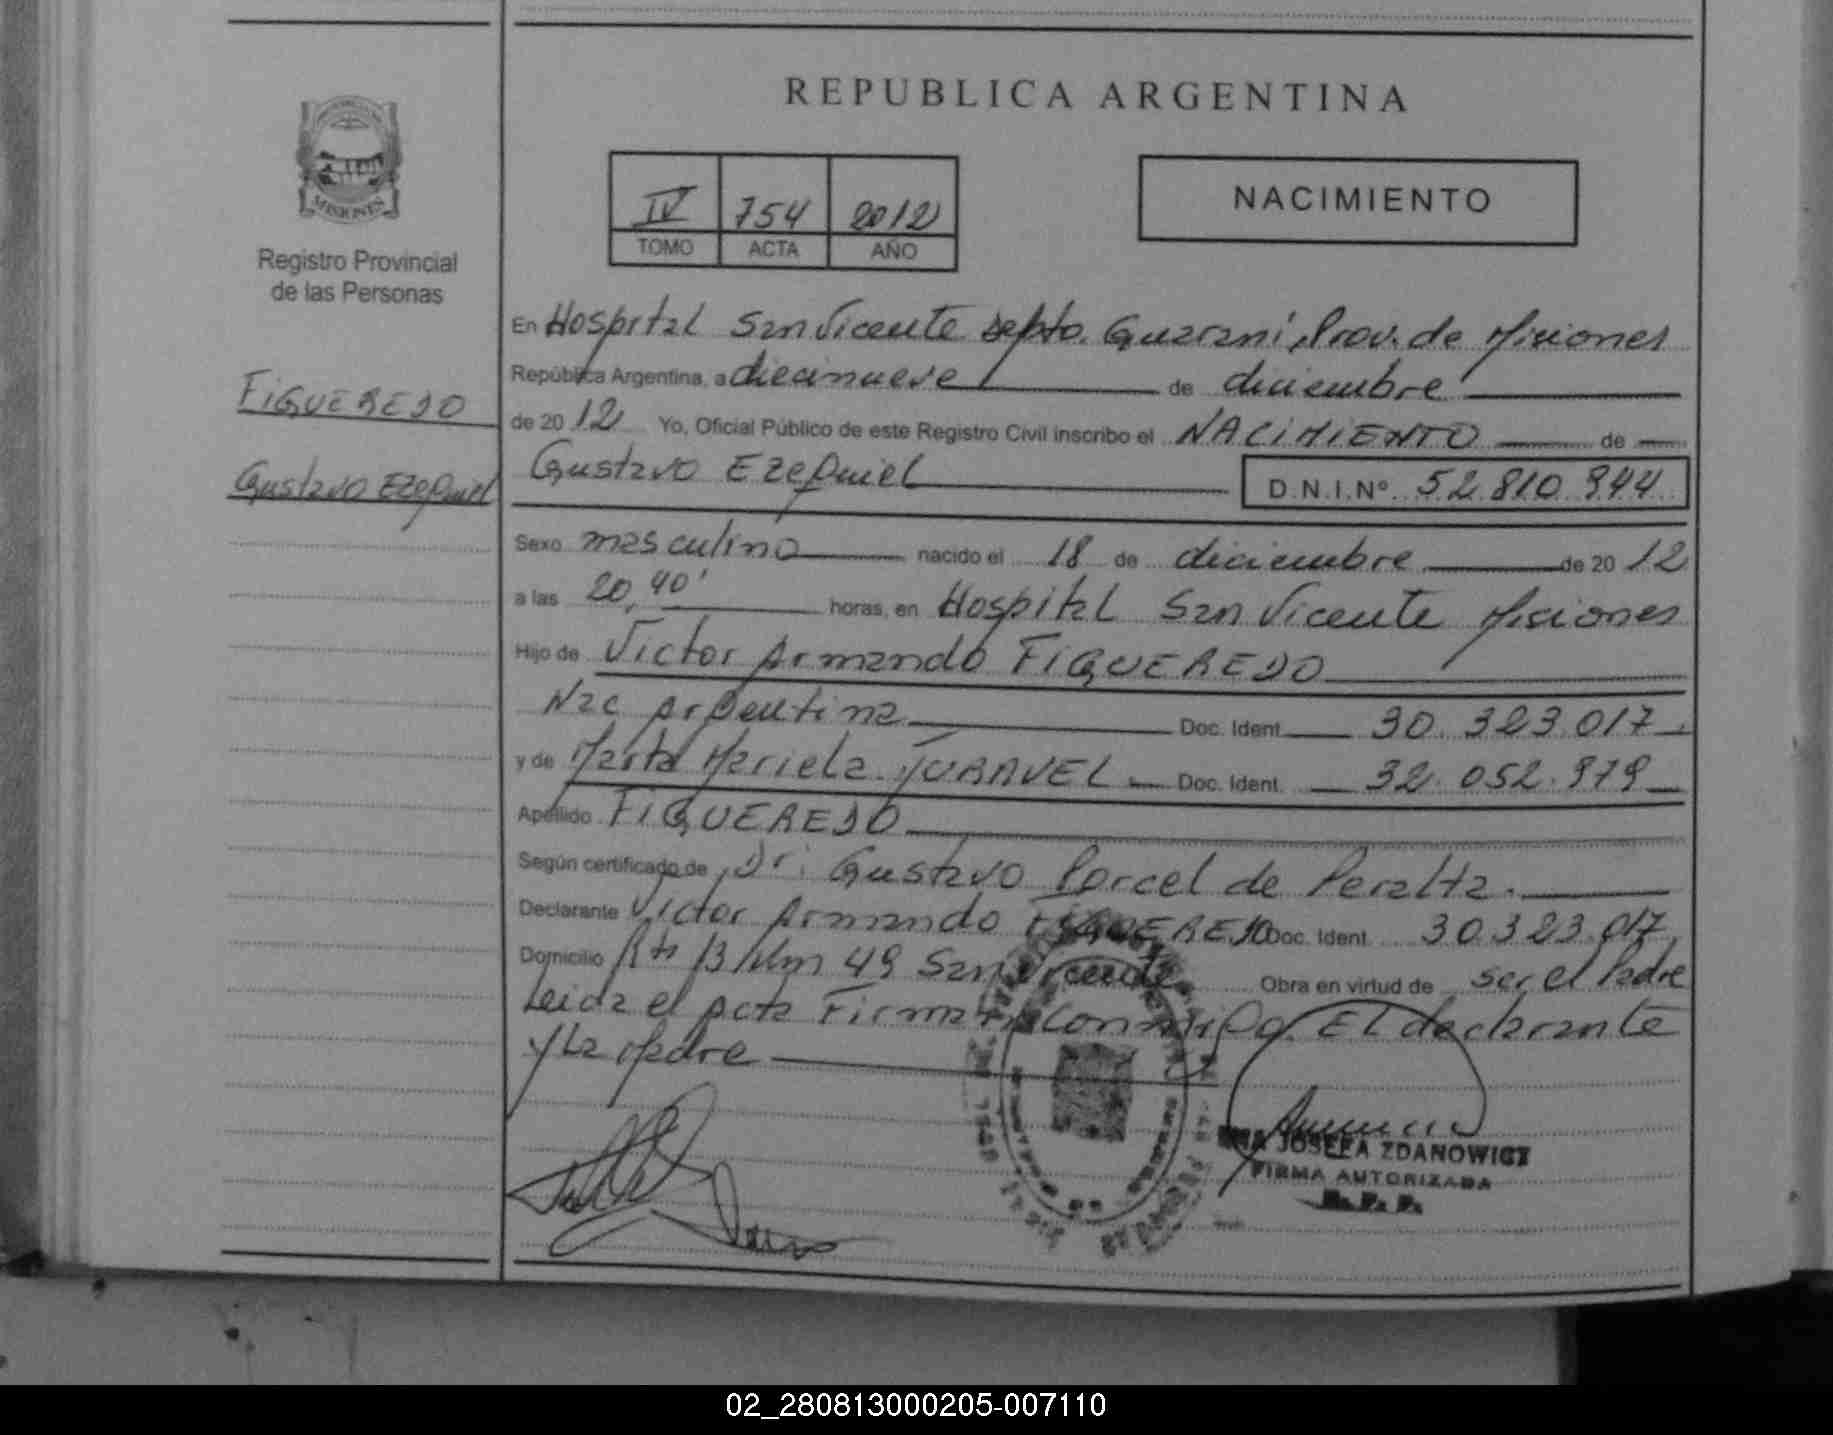 REPUBLICA ARGENTINA
MISIONES
Registro Provincial
de las Personas
IV 754 2012
TOMO ACTA AÑO
NACIMIENTO
FIGUEREDO
Gustavo Ezequiel
En Hospital San Vicente Depto. Guaraní, Prov. de Misiones
República Argentina, a diecinueve de diciembre
de 2012 Yo, Oficial Público de este Registro Civil inscribo el NACIMIENTO de
Gustavo Ezequiel D.N.I.Nº 52.810.944
Sexo masculino nacido el 18 de diciembre de 2012
a las 20,40' horas, en Hospital San Vicente Misiones
Hijo de Victor Armando FIGUEREDO
Nac Argentina Doc. Ident. 30.323.017
y de Marta Mariela YURAVEL Doc. Ident. 32.052.979
Apellido FIGUEREDO
Según certificado de Dr. Gustavo Porcel de Peralta.
Declarante Victor Armando FIGUEREDO Doc. Ident. 30.323.017
Domicilio Rta 13 Klm 49 San Vicente Obra en virtud de ser el Padre
Leida el acta Firman conmigo. El declarante
y La Madre
JOSEFA ZDANOWICZ
FIRMA AUTORIZADA
R. P. P.
02_280813000205-007110